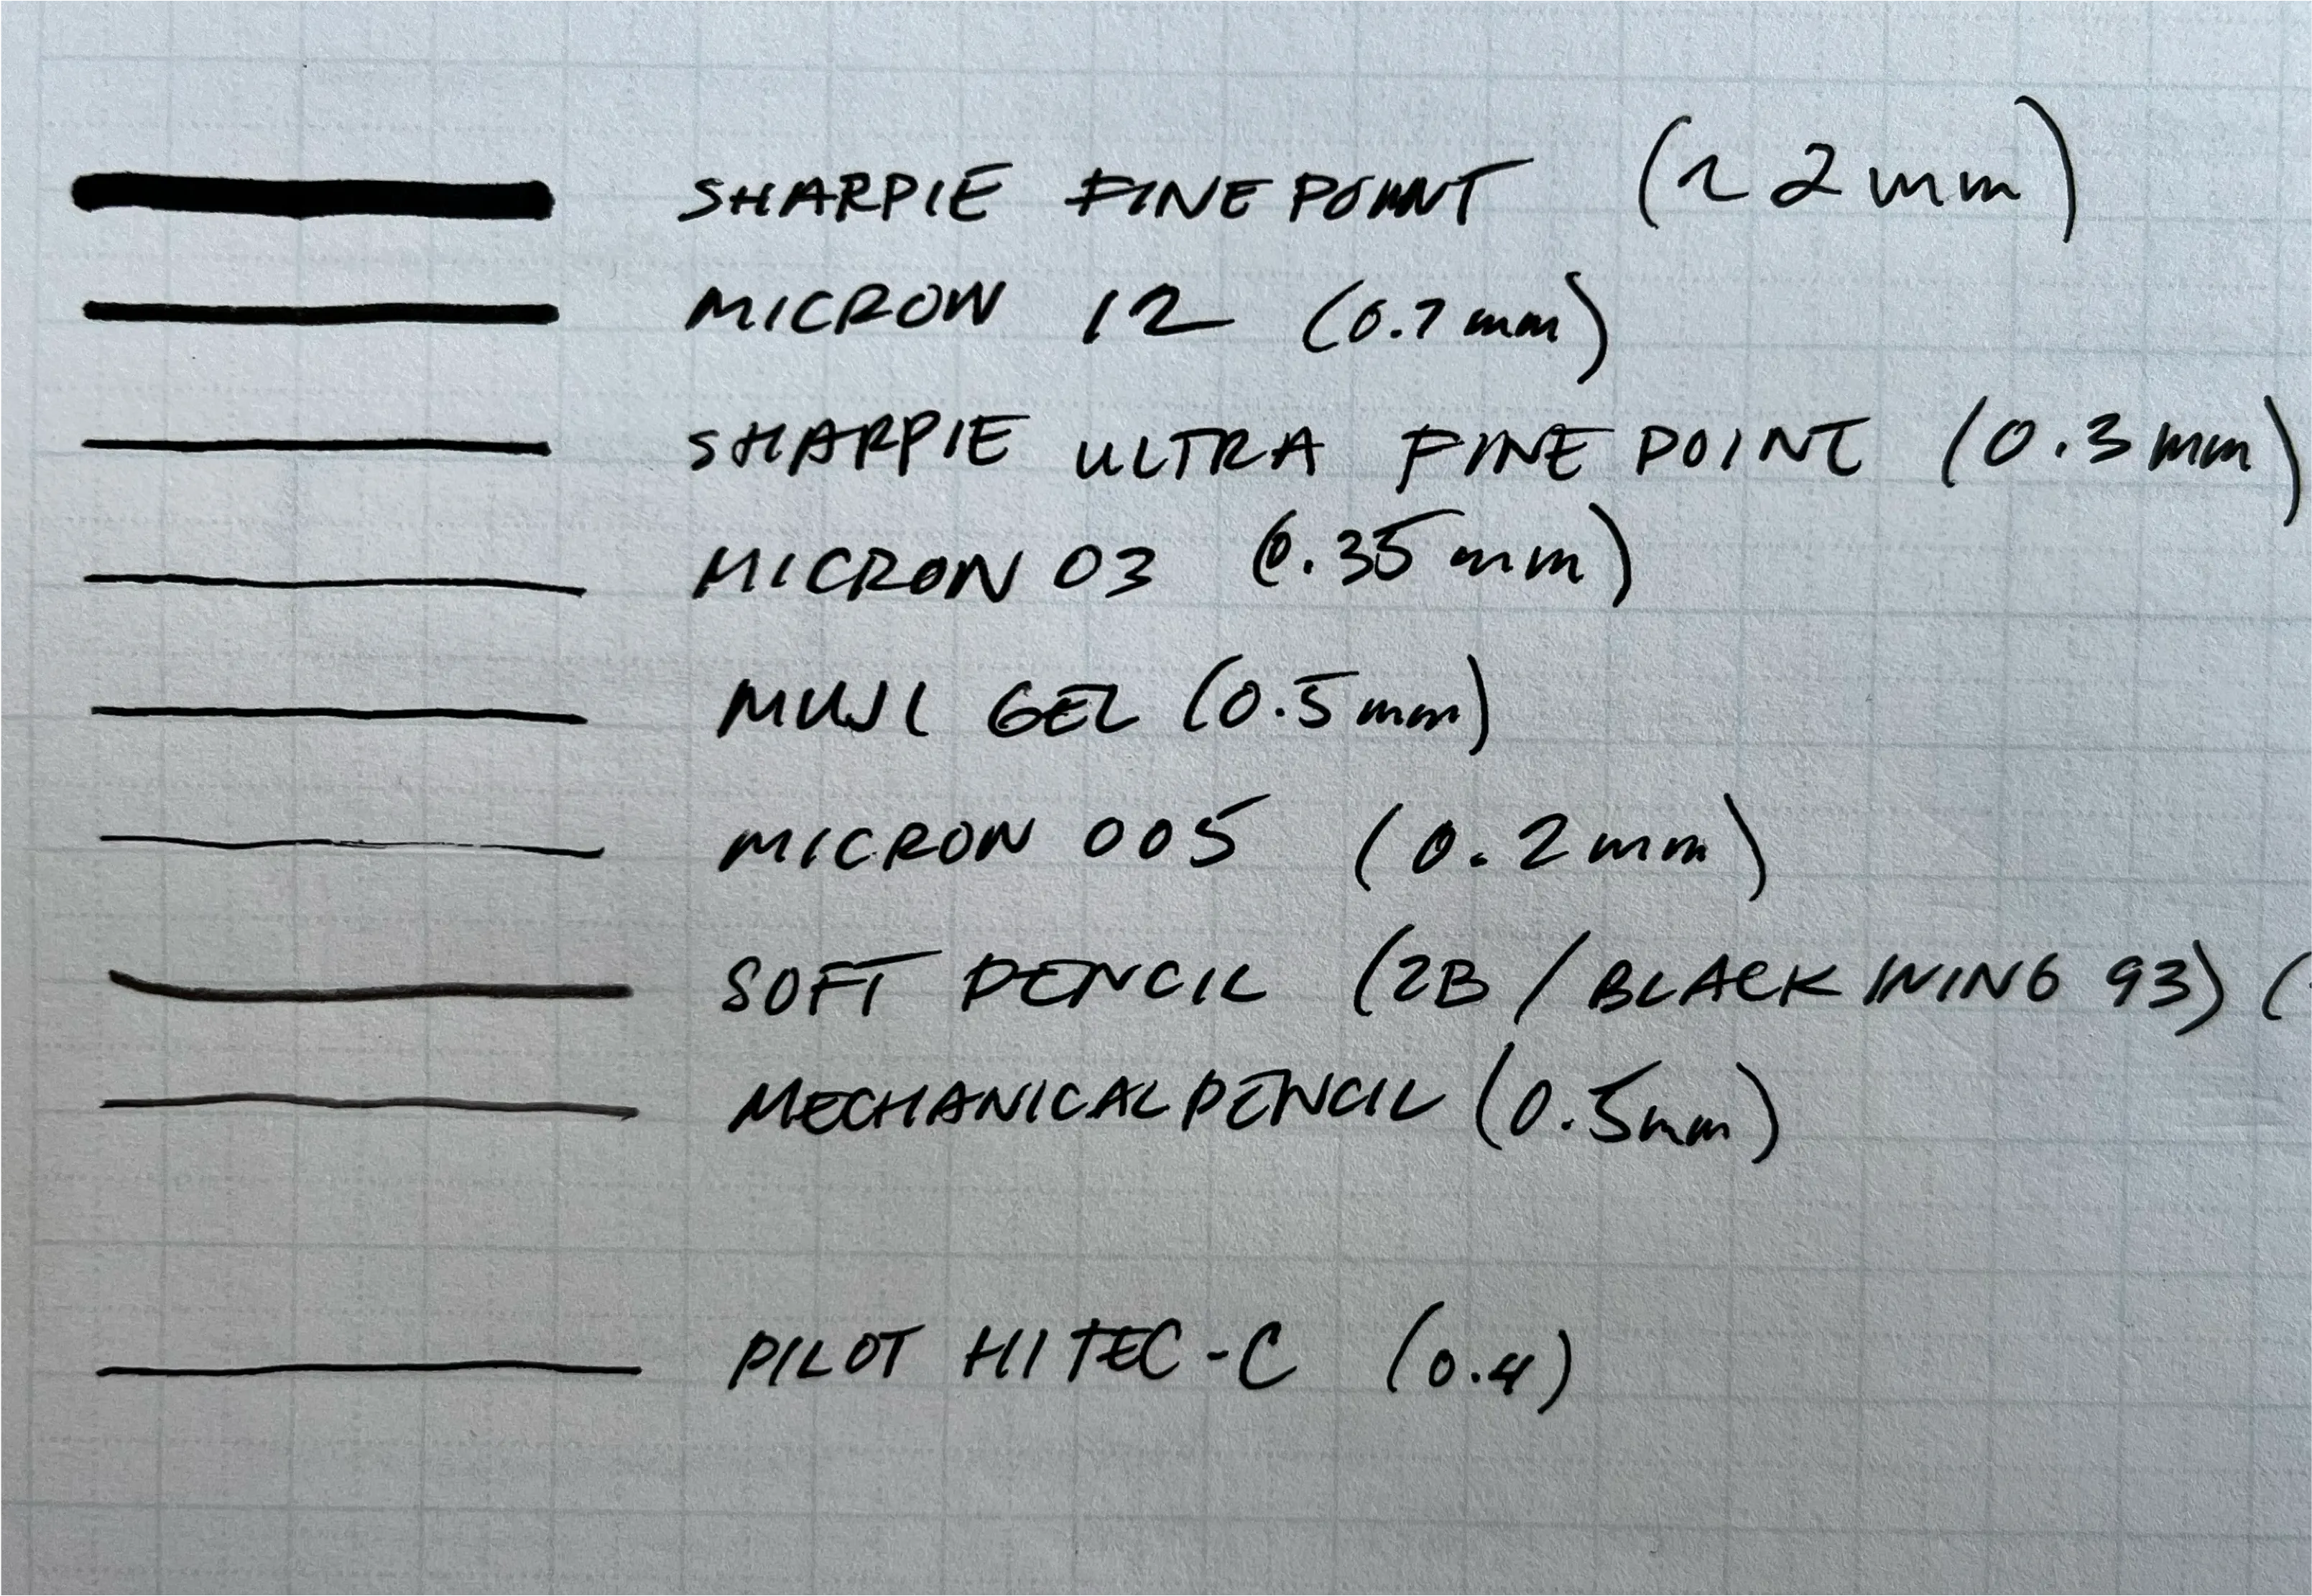 SHARPIE FINE POINT (~2mm)
MICRON 12 (0.7mm)
SHARPIE ULTRA FINE POINT (0.3mm)
MICRON 03 (0.35mm)
MUJI GEL (0.5mm)
MICRON 005 (0.2mm)
SOFT PENCIL (2B / BLACKWING 93) (
MECHANICAL PENCIL (0.5mm)
PILOT HI TEC-C (0.4)